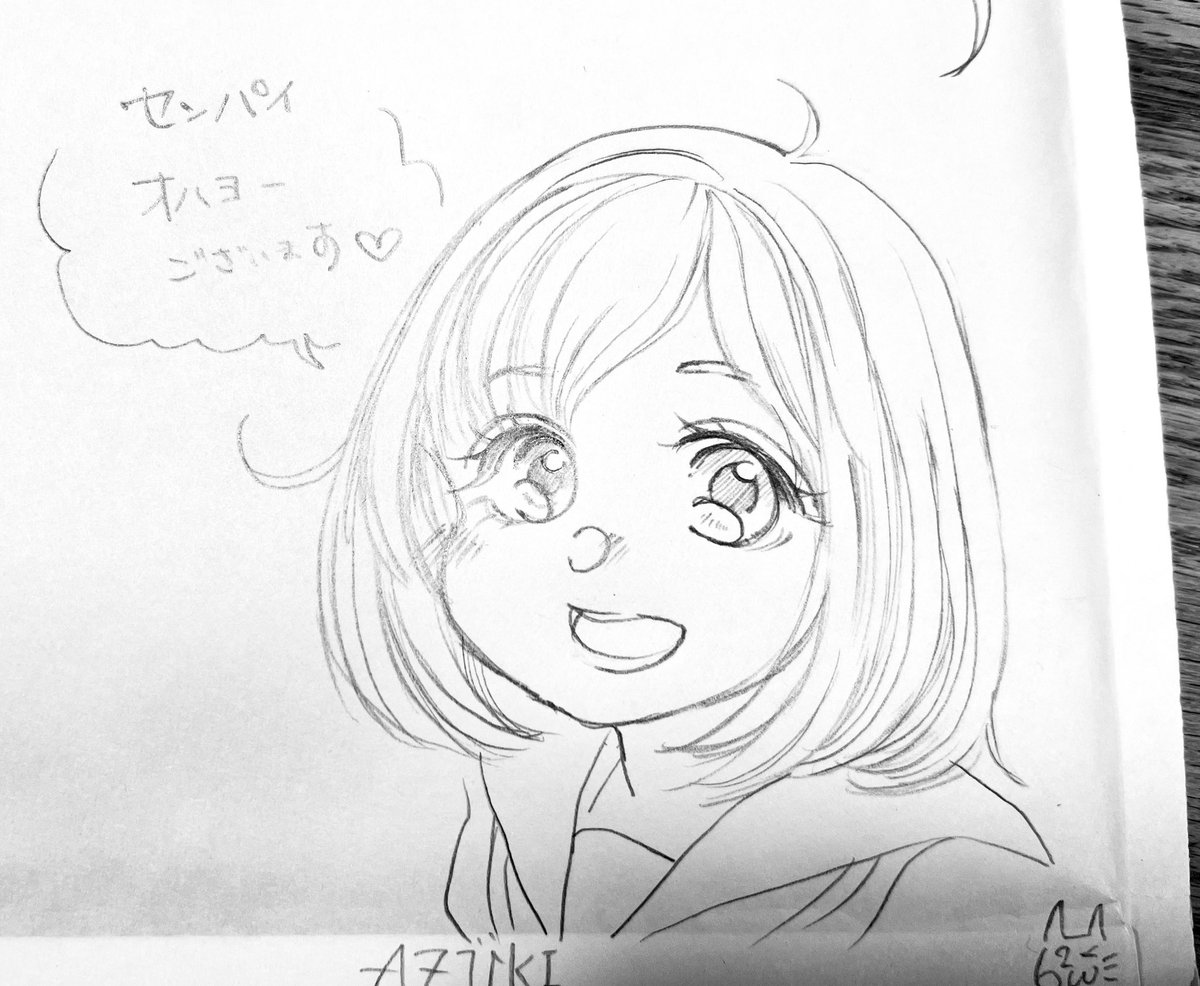 センパイ
オハヨー
ございます♡